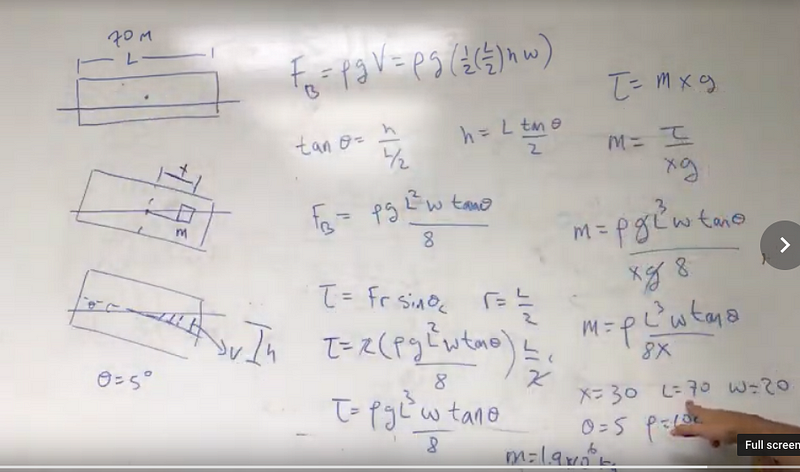 70 M
L
F_B = ρgV = ρg(½(L/2)hw)
tanθ = h/(L/2)
h = L tanθ/2
F_B = ρgL²w tanθ/8
τ = Fr sinθ
r = L/2
τ = 2(ρgL²w tanθ/8) L/2
τ = ρgL³w tanθ/8
x
m
θ
h
θ = 5°
τ = m x g
m = τ/xg
m = ρgL³w tanθ/xg 8
m = ρL³w tanθ/8x
x = 30 L = 70 w = 20
θ = 5 ρ =
Full screen